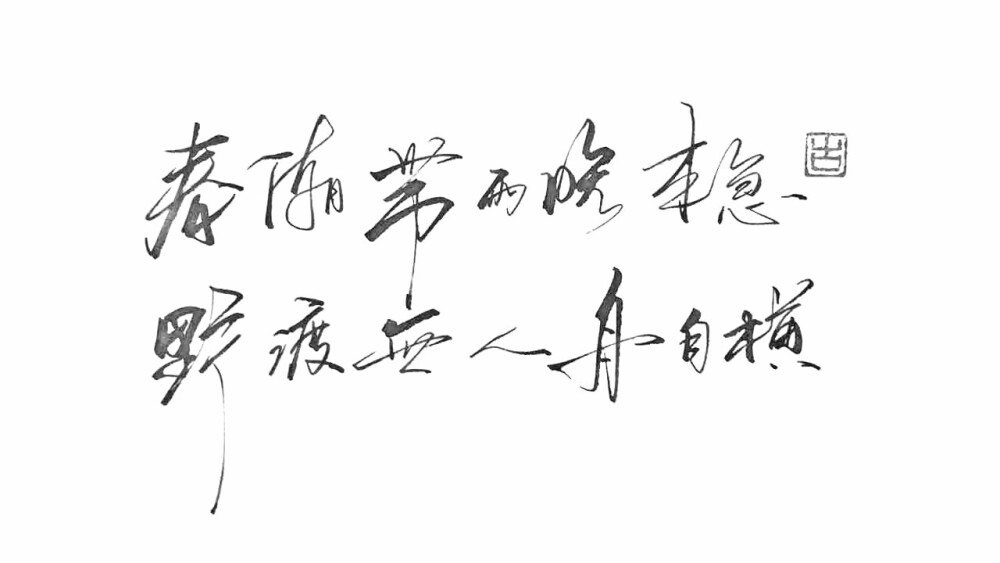 春潮带雨晚来急
野渡無人舟自横